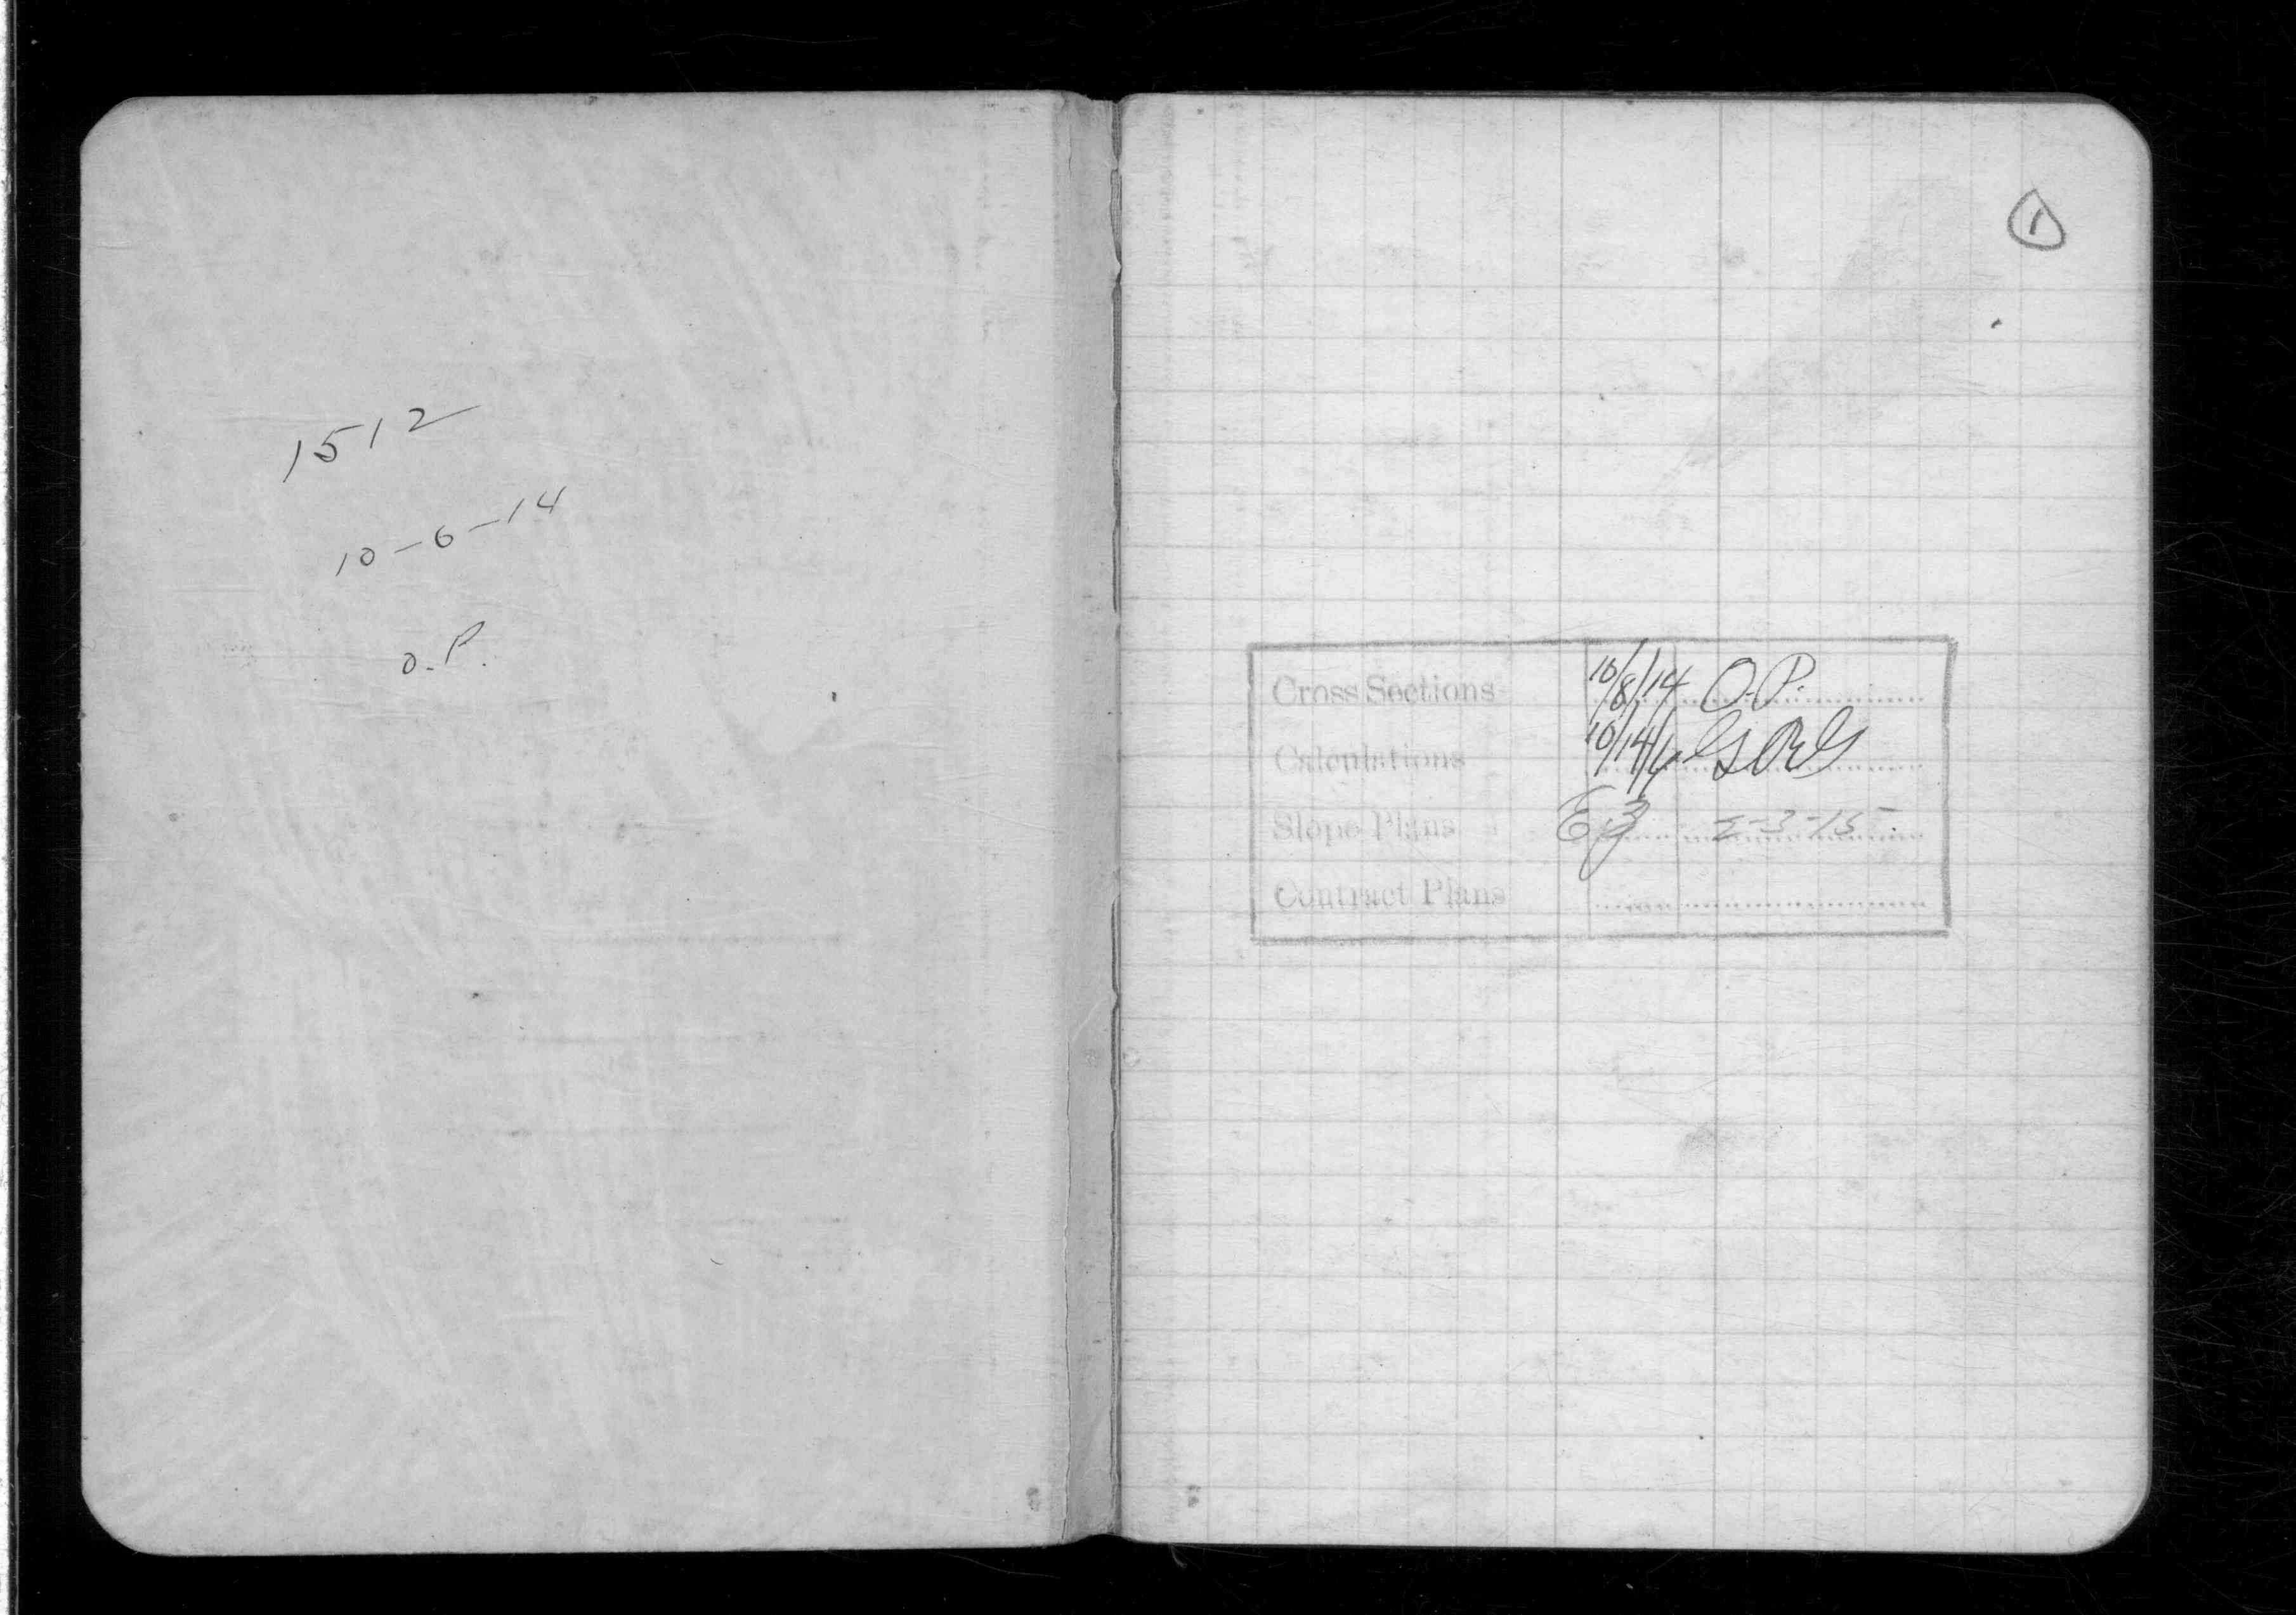 1512
10-6-14
O.P.
1
Cross Sections 10/8/14 O.P.
Calculations 10/14/14
Slope Plans 2-3-15
Contract Plans